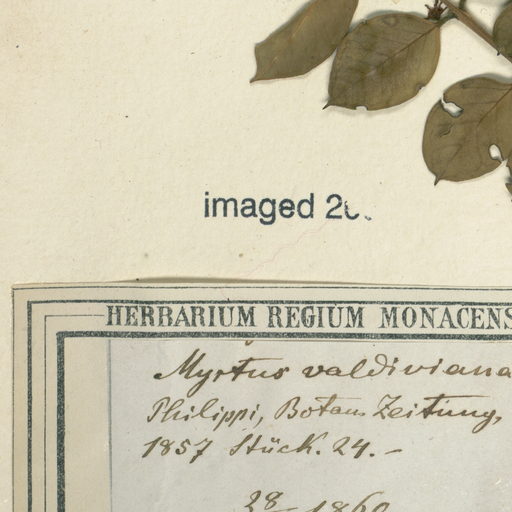 imaged
HERBARIUM REGIUM MONACENS
Myrtus valdiviana
Philippi, Botan. Zeitung,
1857 Stück. 24.-
28